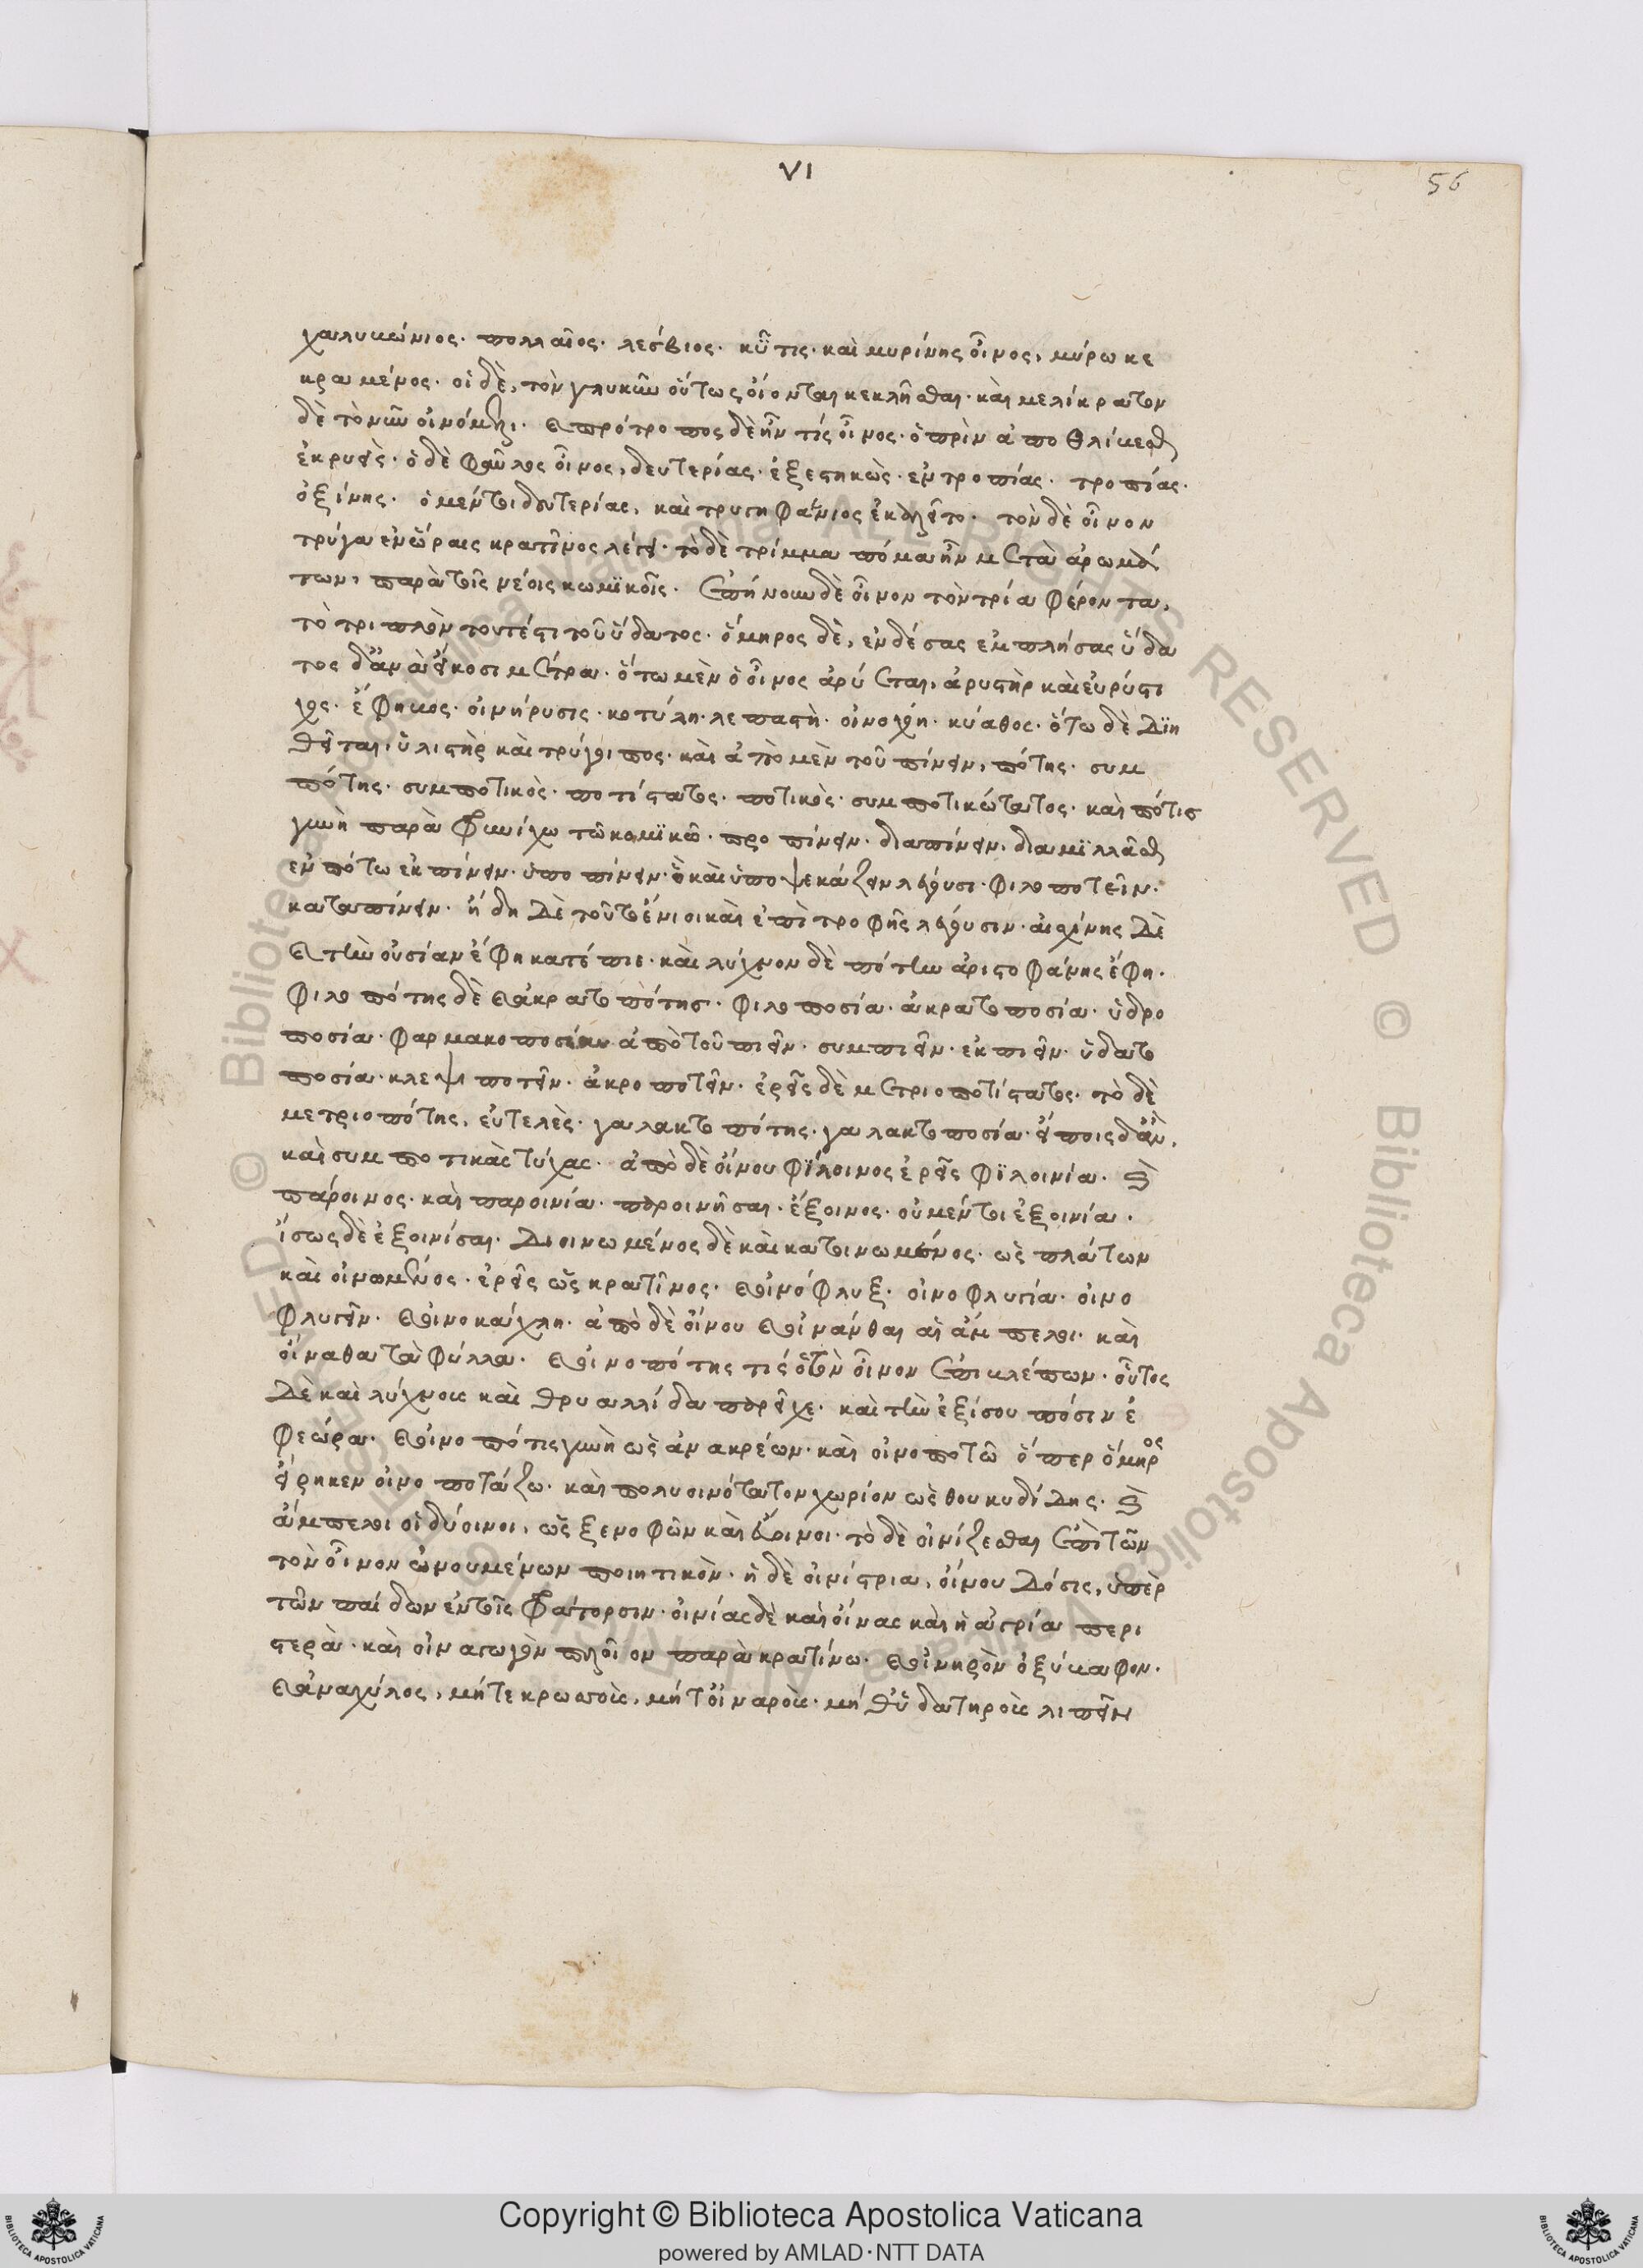 VI
56
χαλυκώνιος. πολλαῖος. λέσβιος. κἦ τις. καὶ μυρίνης οἶνος, μύρω κε
κραμένος. οἱ δὲ, τὸν γλυκῦν οὕτως οἴονται κεκλῆσθαι. καὶ μελίκρατον
δὲ τὸ νῦν οἰνόμελι. πρότροπος δὲ ἦν τίς οἶνος. ὁ πρὶν ἀποθλίβεσθαι
ἐκρυεὶς. ὁ δὲ φαῦλος οἶνος, δευτερίας. ἐξεστηκὼς. ἐντροπίας. τροπίας.
ὀξίνης. ὁ μέντοι δευτερίας, καὶ τρυγηφάνιος ἐκαλεῖτο. τὸν δὲ οἶνον
τρύγα ἐν ὥραις κρατῖνος λέγει. τὸ δὲ τρίμμα πόμα ἦν μετὰ ἀρωμά
των, παρὰ τοῖς νέοις κωμϊκοῖς. ἐπήνουν δὲ οἶνον τὸν τρία φέροντα,
τὸ τριπλοῦν τουτέστι τοῦ ὕδατος. ὅμηρος δὲ, ἐν δέπας ἐμπλήσας ὕδα
τος δ' ἀν ὰ εἴκοσι μέτρα. ὅτω μὲν ὁ οἶνος ἀρύεται, ἀρυστὴρ καὶ εὐρύστι
χος. ἔφηβος. οἰνήρυσις. κοτύλη. λεπαστὴ. οἰνοχόη. κύαθος. ὅτω δὲ διη
θεῖται, ὑλιστὴς καὶ τρύγοιπος. καὶ ἀπὸ μὲν τοῦ πίνειν, πότης. συμ
πότης. συμποτικὸς. ποτίστατος. ποτικὸς. συμποτικώτατος. καὶ πότις
γυνὴ παρὰ φρυνίχω τῶ κομϊκῶ. προπίνειν. διαπίνειν. διαμϊλλᾶσθαι
ἐν πότω ἐκπίνειν. ὑποπίνειν. ὃ καὶ ὑποψεκάζειν λέγουσι. φιλοποτεῖν.
καταπίνειν. ἤδη δὲ τοῦτο ἔνιοι καὶ ἐπὶ τροφῆς λέγουσιν. αἰσχίνης δὲ
καὶ τὴν οὐσίαν ἔφη κατέπιε. καὶ λύχνον δὲ πότην ἀριστοφάνης ἔφη.
φιλοπότης δὲ καὶ ἀκρατοπότης. φιλοποσία. ἀκρατοποσία. ὑδρο
ποσία. φαρμακοποσία ἀπὸ τοῦ πιεῖν. συμπιεῖν. ἐκπιεῖν. ὑδατο
ποσία. κλεψιποτεῖν. ἀκροποτεῖν. ἐρεῖς δὲ μετριοποτίστατος. τὸ δὲ
μετριοπότης, εὐτελὲς. γαλακτοπότης. γαλακτοποσία. εἴποις δ' ἂν,
καὶ συμποτικὰς τύχας. ἀπὸ δὲ οἴνου φϊλοινος ἐρεῖς φϊλοινία. καὶ
πάροινος. καὶ παροινία. παροινῆσαι. ἔξοινος. οὐ μέντοι ἐξοινία.
ἴσως δὲ ἐξοινίσαι. διοινωμένος δὲ καὶ κατοινωμένος. ὡς πλάτων
καὶ οἰνωμένος. ἐρεῖς ὡς κρατῖνος. καὶ οἰνόφλυξ. οἰνοφλυγία. οἰνο
φλυγεῖν. καὶ οἰνοκάχλη. ἀπὸ δὲ οἴνου καὶ οἰνάνθαι αἱ ἄμπελοι. καὶ
οἴναθα τὰ φύλλα. καὶ οἰνοπότης τίς ὁ τὸν οἶνον ἐπικλέπων. οὗτος
δὲ καὶ λύχνους καὶ θρυαλλίδα παρεῖχε. καὶ τὴν ἐξίσου πόσιν ἐ
φεώρα. καὶ οἰνοπότις γυνὴ ὡς ἀνακρέων. καὶ οἰνοποτῶ ὅπερ ὅμηρος
εἴρηκεν οἰνοποτάζω. καὶ πολυοινότατον χωρίον ὡς θουκυδίδης. καὶ
ἄμπελοι οἱ δύοινοι, ὡς ξενοφῶν καὶ εὔοινοι. τὸ δὲ οἰνίζεσθαι ἐπὶ τῶν
τὸν οἶνον ὠνουμένων ποιητικὸν. ἡ δὲ οἰνίστρια, οἴνου δόσις, ὑπὲρ
τῶν παίδων ἐν τοῖς φράτορσιν. οἰνίας δὲ καὶ οἴνας καὶ ἡ ἀγρία περι
στερὰ. καὶ οἰναγωγὸν πλοῖον παρὰ κρατίνω. καὶ οἰνηρὸν ὀξύβαφον.
καὶ αἰσχύλος, μήτε κρωσσοὺς, μήτ' οἰναροὺς. μήθ' ὑδατηροὺς λιπεῖν